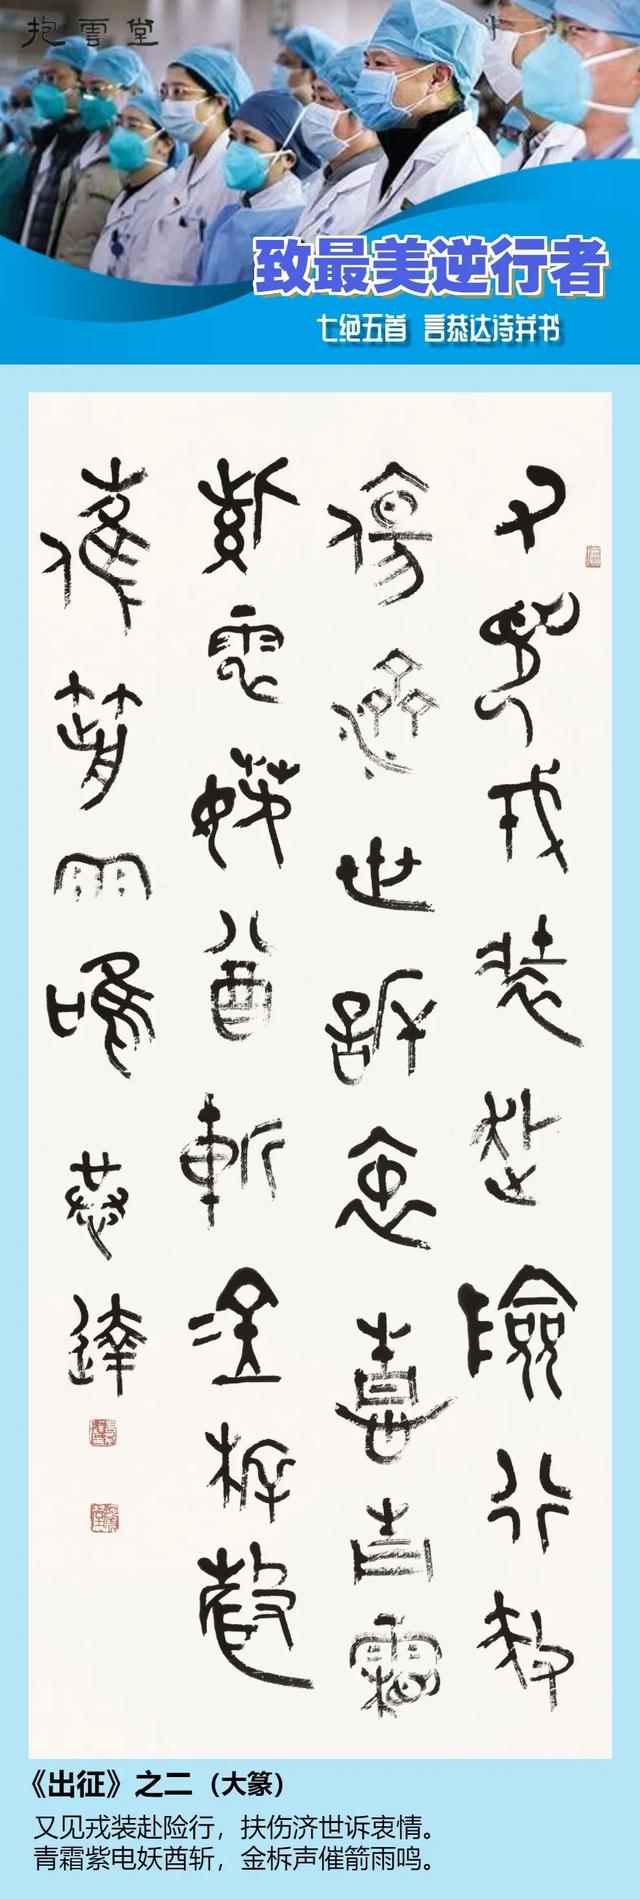 抱雲堂
致最美逆行者
七绝五首 言恭达诗并书
又見戎裝赴險行扶
傷濟世訴青霜
紫電妖酋斬金柝聲
催箭雨鳴 恭達
《出征》之二（大篆）
又见戎装赴险行，扶伤济世诉衷情。
青霜紫电妖酋斩，金柝声催箭雨鸣。